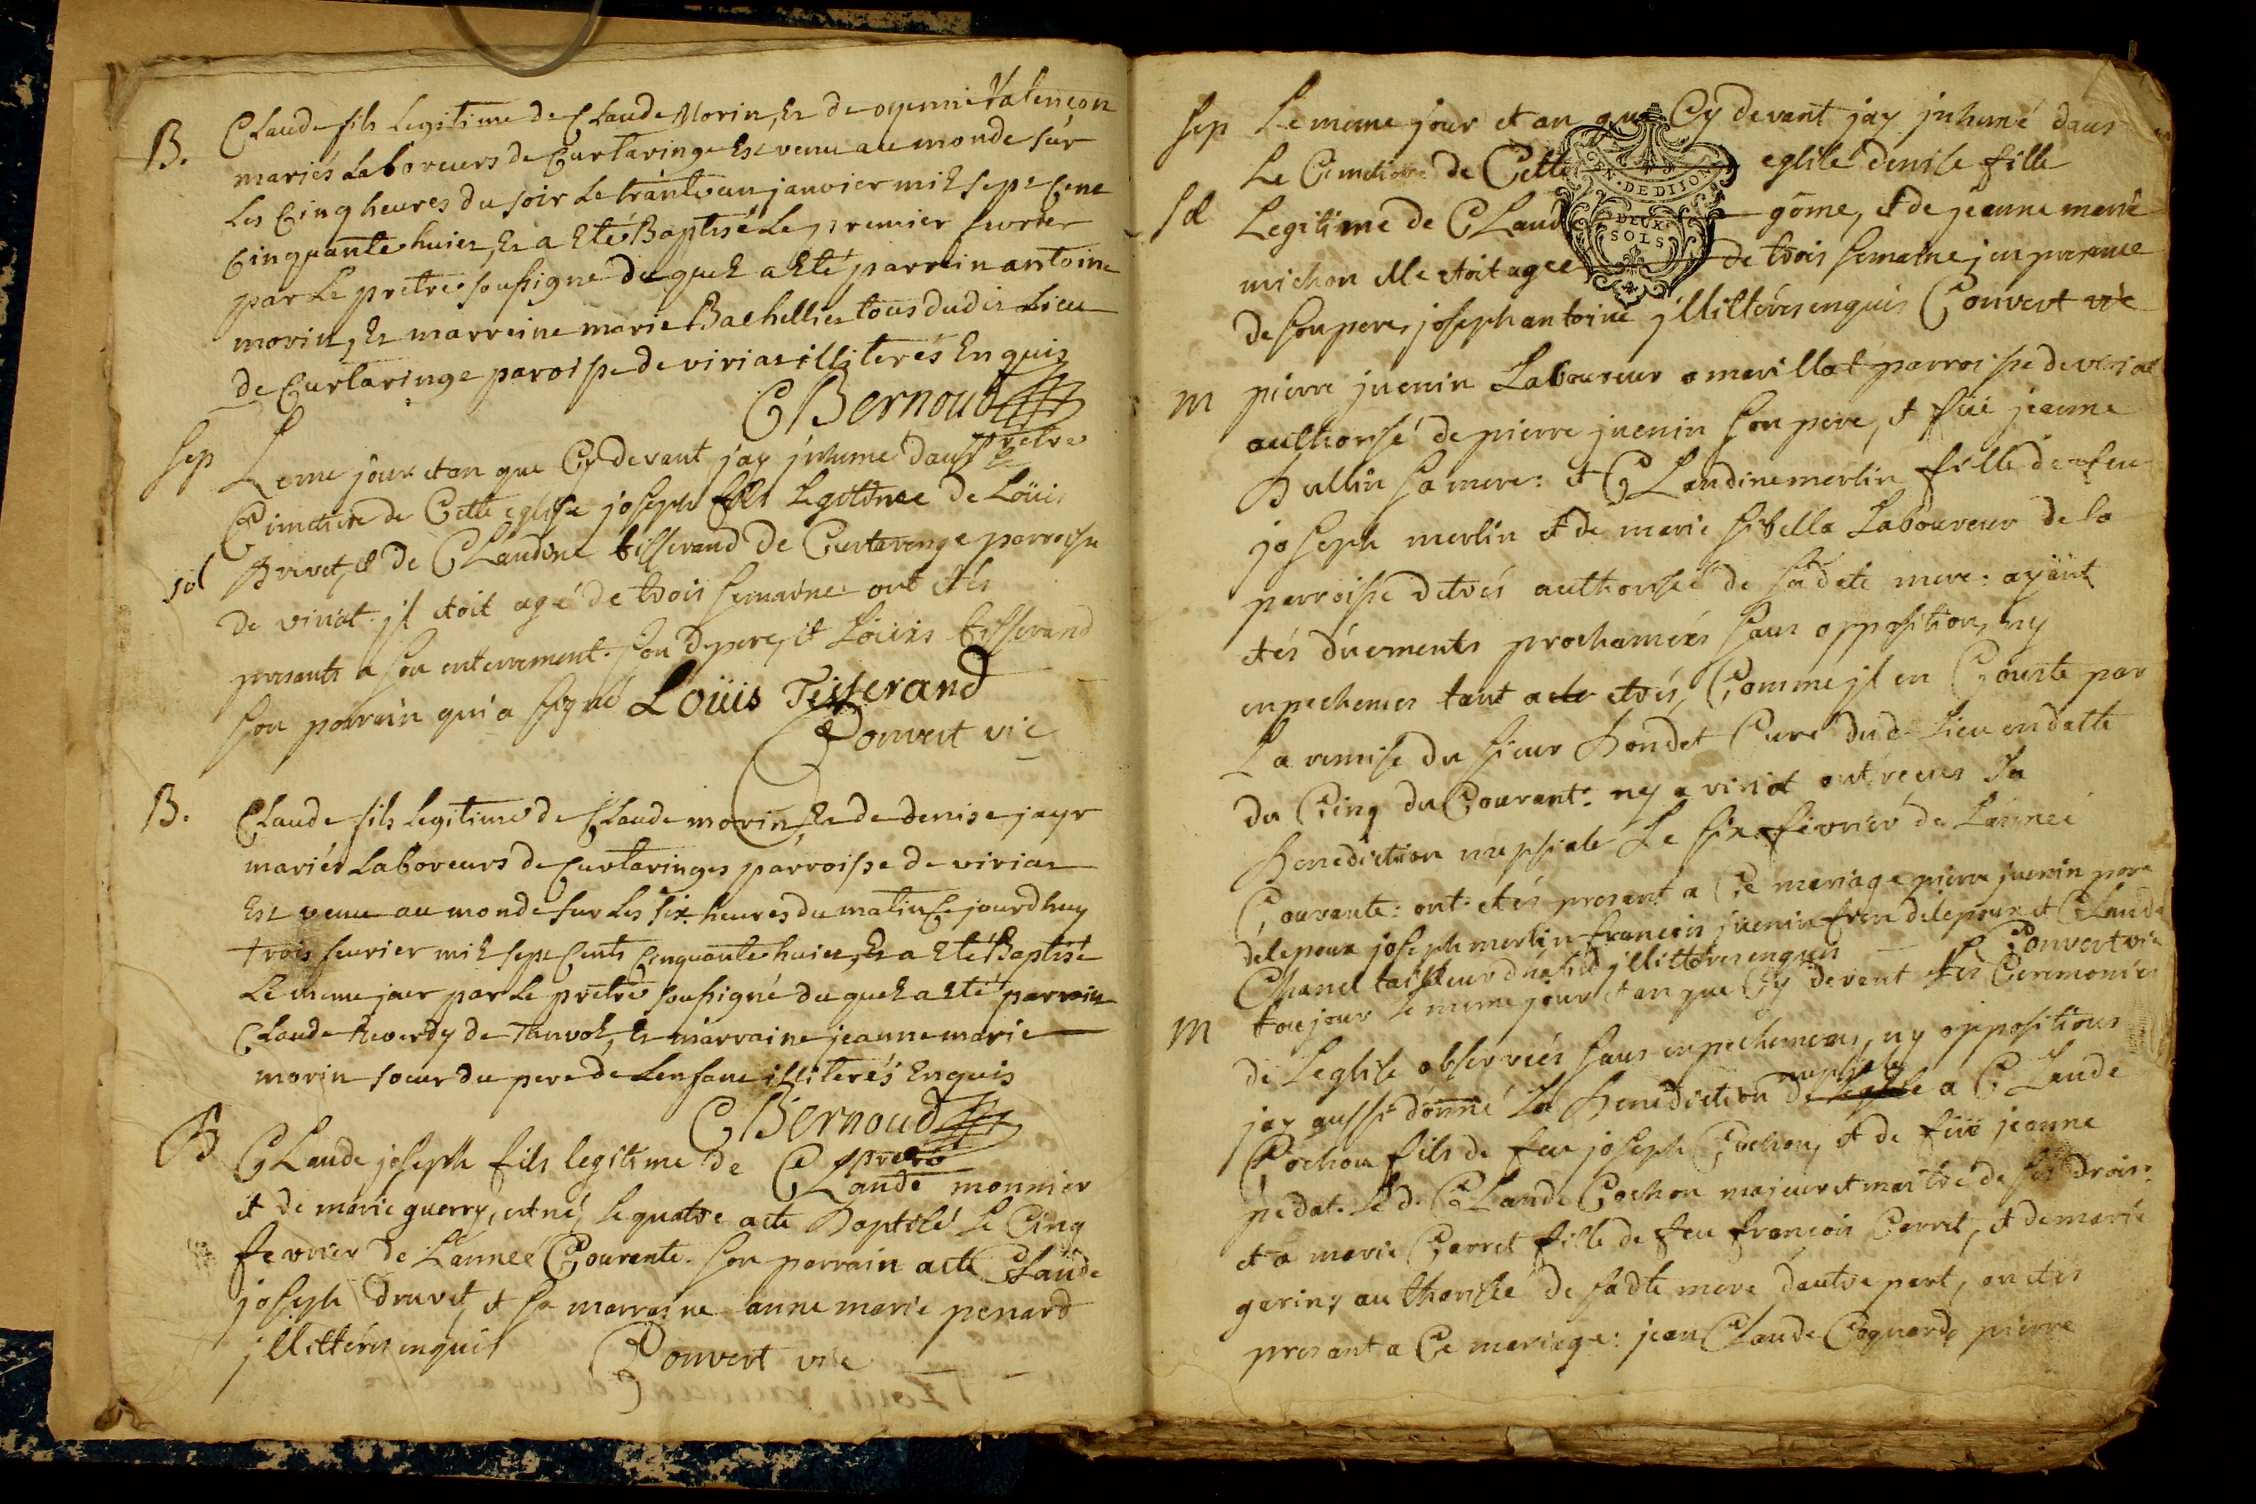 B. Claude fils legitime de Claude Morin, Et de
mariés Laboreurs de Curtaringe Est venu au monde sur
Les Cinq heures du soir Le trante un janvier mil sept Cent
Cinquante huict, Et a Eté Baptisé Le premier fevrier
par Le pretre soussigné du quel a Eté parrein antoine
morin, Et marreine marie Bachellier tous dudit Lieu
de Curtaringe paroisse de viriat illiterés Enquis
C Bernoud
pretre
sep Le me jour et an que Cy devant jay jnhumé dans le
Cimetiere de Cette eglise joseph fils Legitime de Loüis
Brevet, et de Claudine tisserand de Curtaringe parroisse
sol de viriat. jl etoit agé de trois semaine ont etés
presants a son enterrement. son d pere, et Loüis tisserand
son parrain qui a signé Loüis Tisserand
Convert vic
B. Claude fils Legitime de Claude morin, Et de denise jayr
mariés Laboreurs de Curtaringes parroisse de viriat
Est venu au monde sur Les six heures du matin Ce jourdhuy
trois fevrier mil sept Cents Cinquante huict, Et a Eté Baptisé
Le meme jour par Le pretre soussigné du quel a Eté parrein
Claude Reverdy de Tanvol, Et marraine jeanne marie
morin soeur du pere de Lenfant illiterés Enquis
C Bernoud
pretre
B Claude joseph fils legitime de Claude monnier
et de marie guerry, est né, le quatre a ete baptisé le Cinq
fevrier de L'année Courante. son parrain a ete Claude
joseph druvet, et sa marraine anne marie penard
jllitterés enquis Convert vic
sep Le meme jour et an que Cy devant jay jnhumé dans
Le Cimetiere de Cette eglise denise fille
sol Legitime de Claud gome, et de jeanne marie
michon elle etoit agee de trois semaine, en presance
de son pere, joseph antoine jllitterés enquis Convert vic
GN. DE DIJON
DEUX
SOLS
m pierre juenin Laboureur a marillat parroisse de viriat
authorisé de pierre juenin son pere, et füe jeanne
Bullin sa mere: et Claudine merlin fille de feu
joseph merlin et de marie sibella Laboureur de la
parroisse detrés authorisée de sa dete mere: ayant
etés düements proclamées sans opposition, ny
enpechemes tant a etrés, Comme jl en Conste par
La remise du sieur Bondet Curé dud. Lieu en datte
du Cinq du Courant: ny a viriat ont reçus La
benediction nupsiale Le six fevrier de L'année
Courante: ont etés presant a Ce mariage pierre juenin pere
delepoux joseph merlin francois juenin frere delepoux et Claude
Chanel tailleur dhabid jllitterés enquis Convert vic
m toujour le meme jour et an que Cy devant Les Ceremonies
de L'eglise observées sans enpechemens, ny oppositions
jay aussi donné La benediction nupsiale a Claude
Cochon fils de feu joseph Cochon, et de füe jeanne
pedat. Le d. Claude Cochon majeur et maitre de ses drois:
et a marie Carret fille de feu francois Carret, et de marie
garin, authorisée de sadte mere d'autre part, on etés
presant a Ce mariage: jean Claude Cognard, pierre